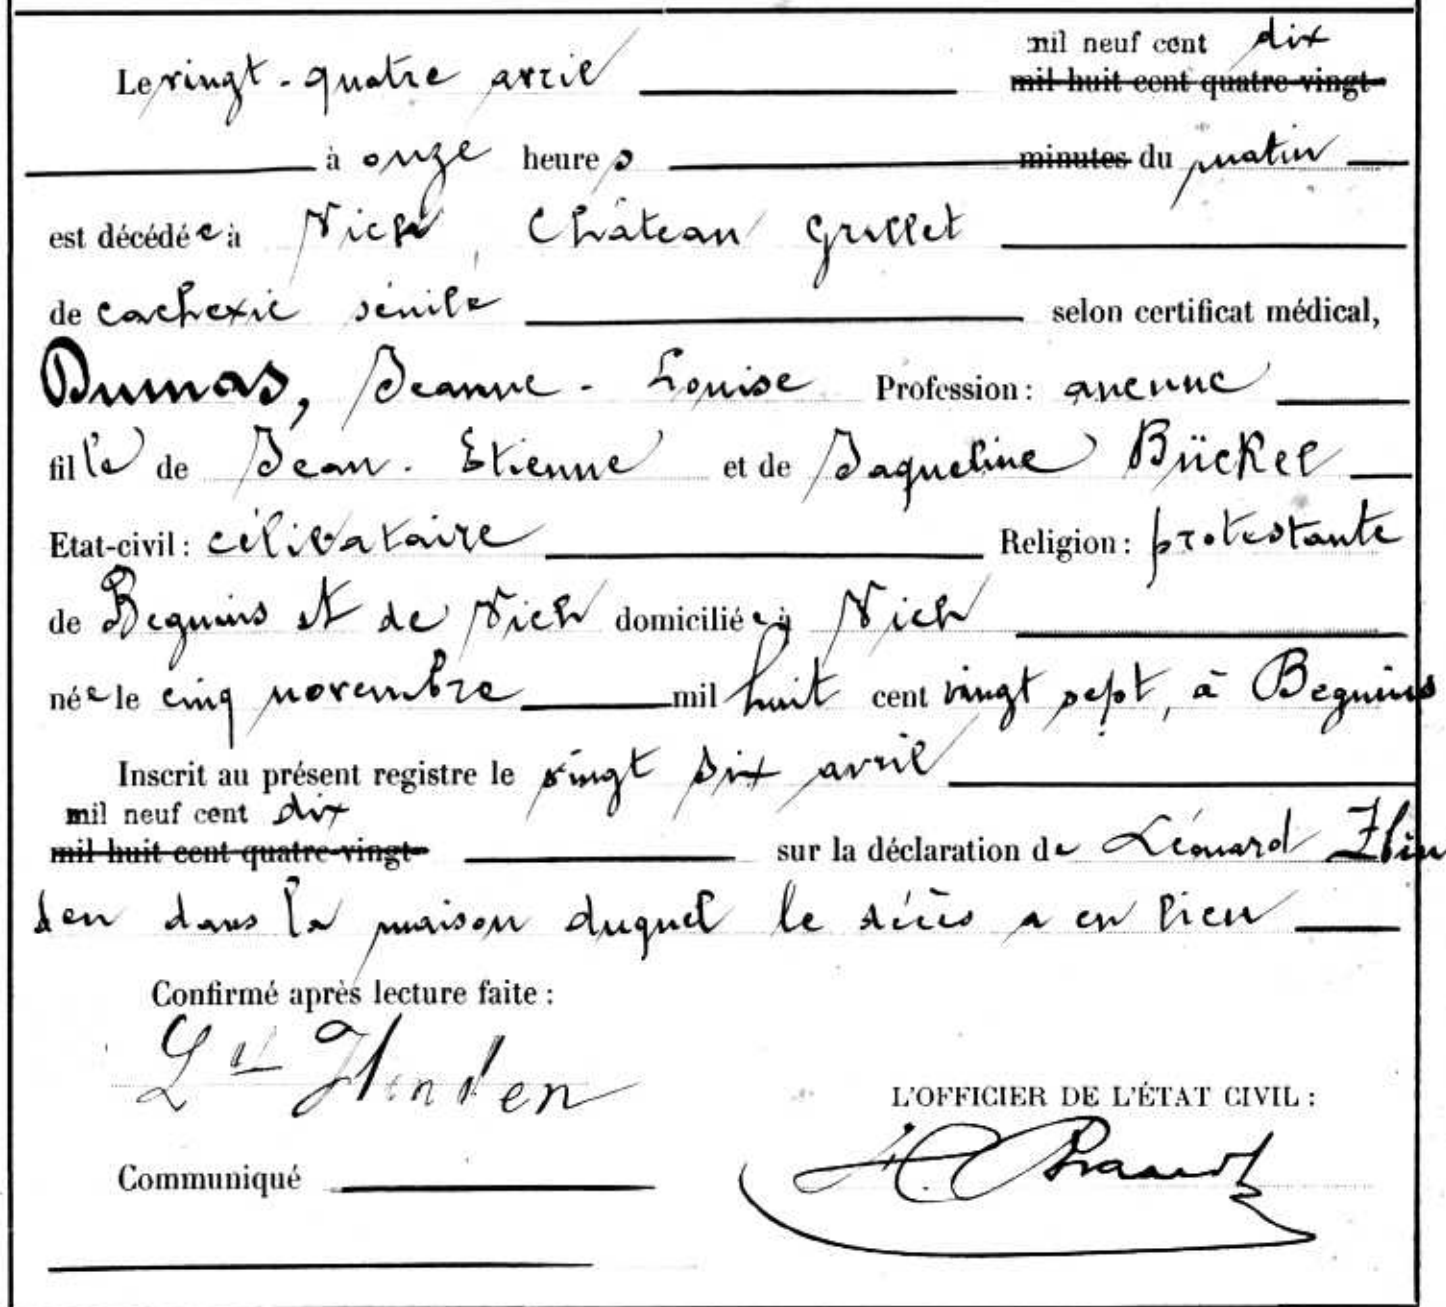 Le vingt-quatre avril mil neuf cent dix
mil huit cent quatre-vingt-
à onze heures minutes du matin
est décédée à Vich, Château Grillet
de cachexie sénile selon certificat médical,
Dumas, Jeanne-Louise Profession: aucune
fille de Jean-Etienne et de Jaqueline Bückel
Etat-civil: célibataire Religion: protestante
de Begnins et de Vich domiciliée à Vich
née le cinq novembre mil huit cent vingt sept, à Begnins
Inscrit au présent registre le vingt six avril
mil neuf cent dix
mil huit cent quatre-vingt- sur la déclaration de Léonard Zbin
den dans la maison duquel le décès a eu lieu
Confirmé après lecture faite:
Zbinden
L'OFFICIER DE L'ÉTAT CIVIL:
Communiqué